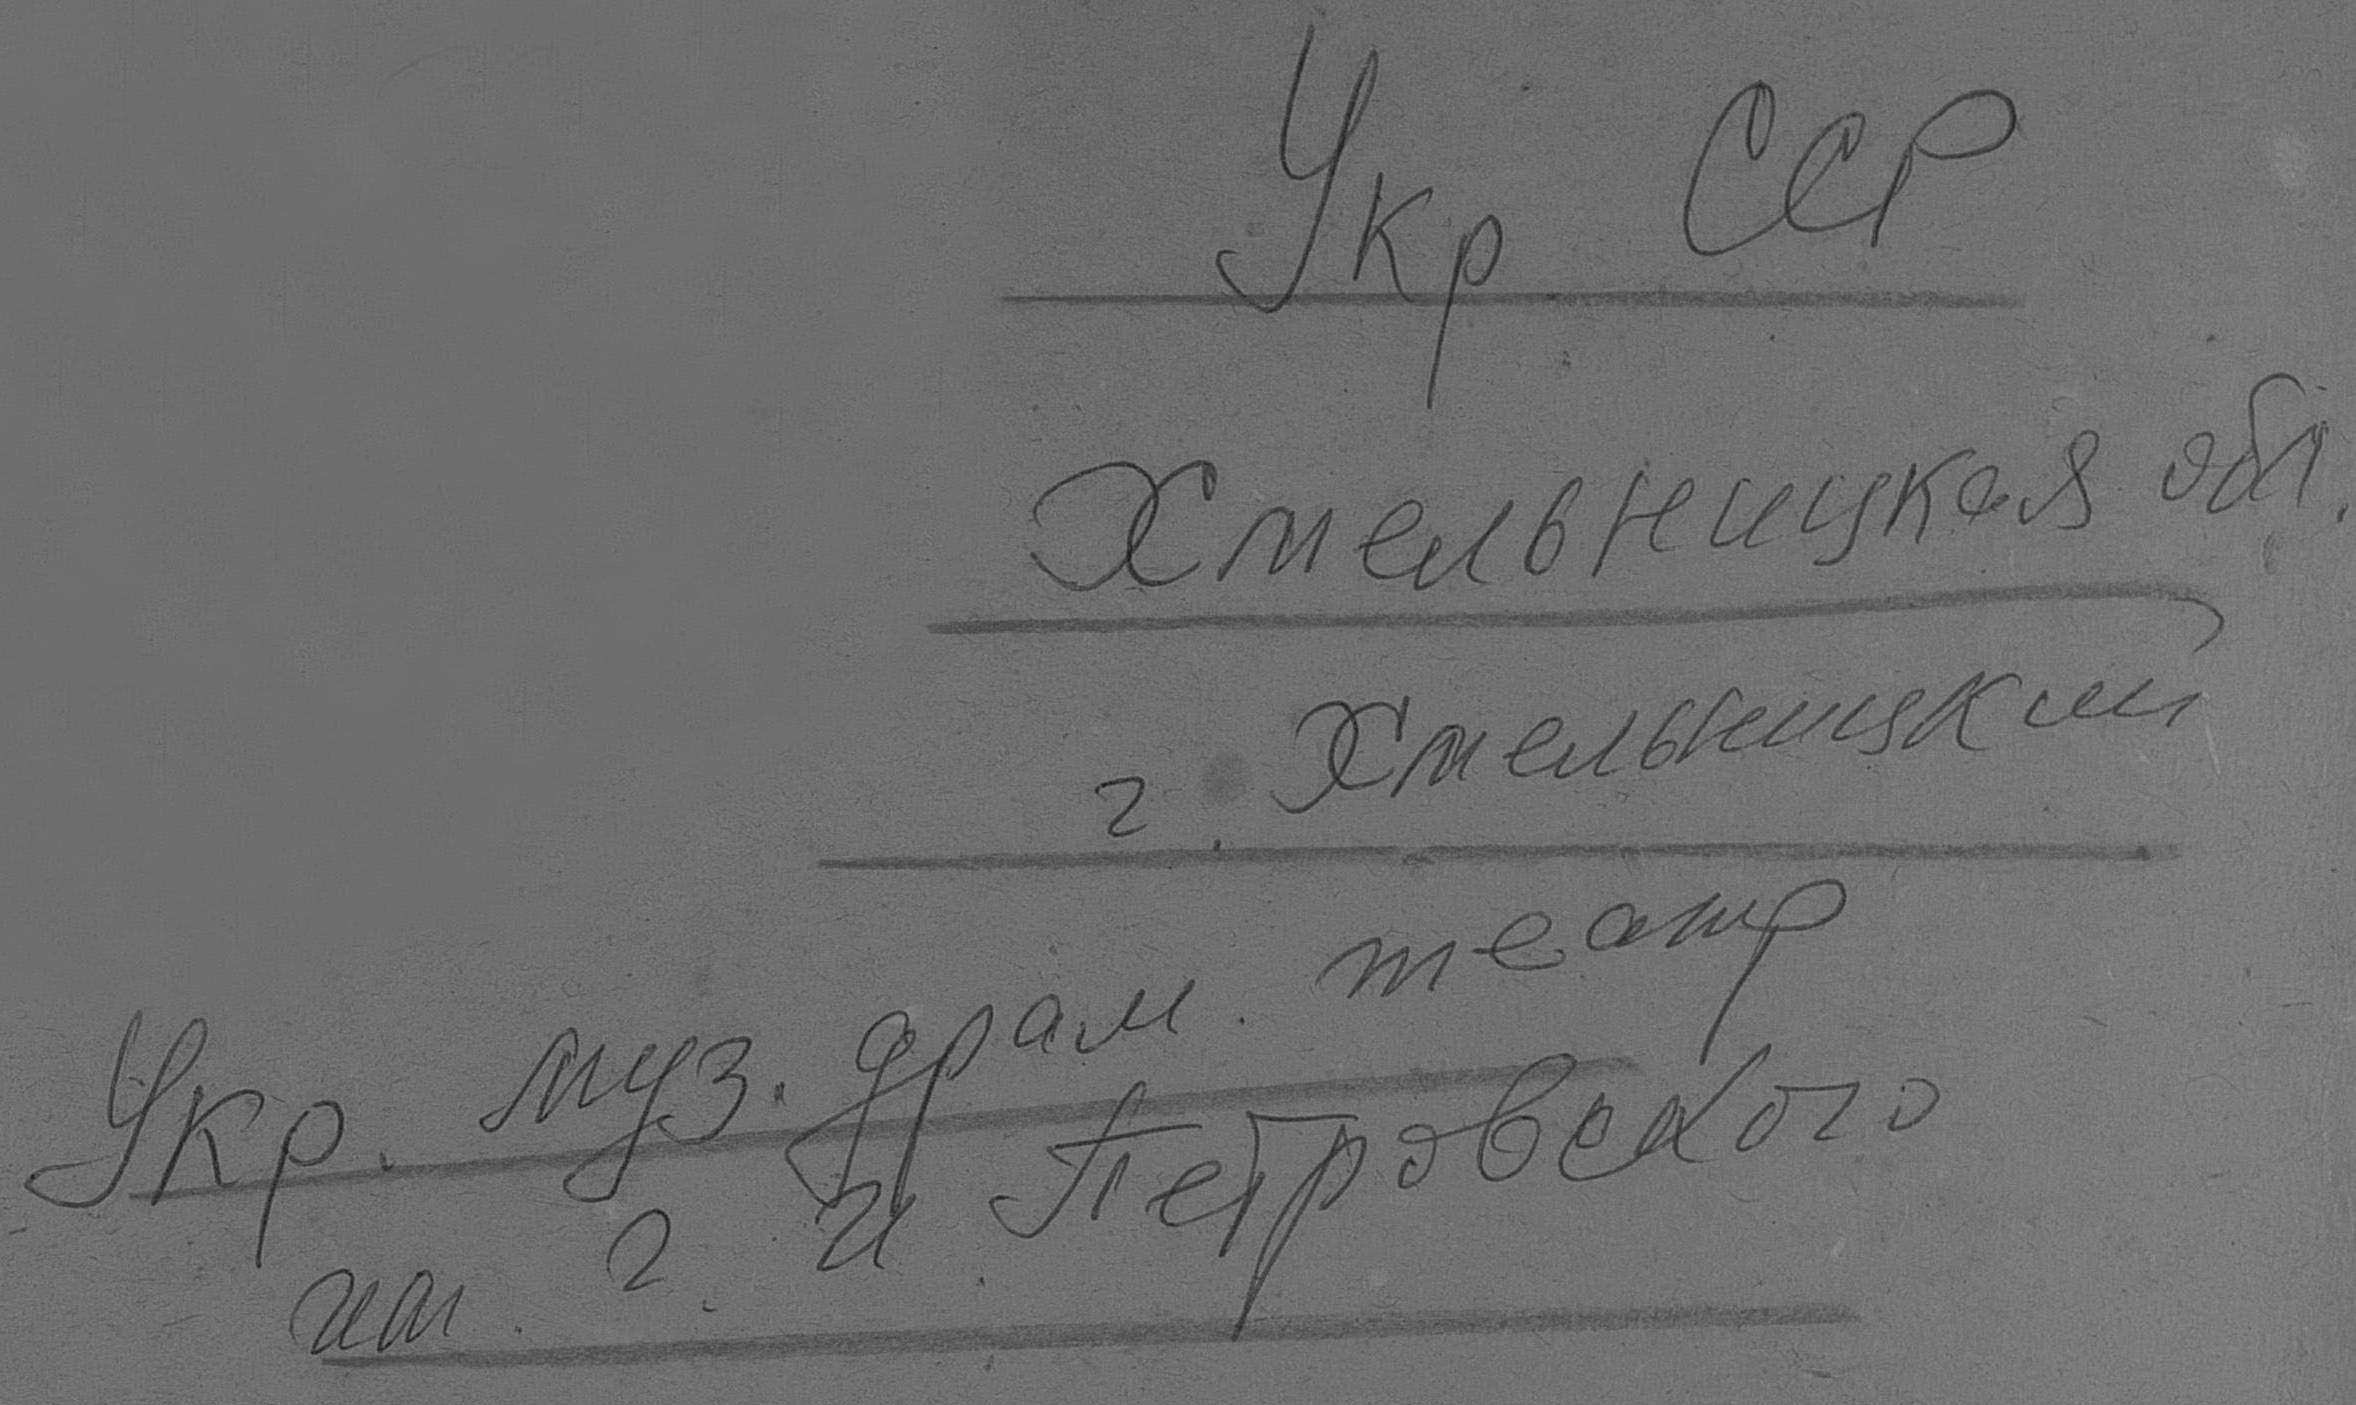 Укр ССР
Хмельницкая обл.
г. Хмельницкий
Укр. муз. драм. театр
им. г. и Петровского